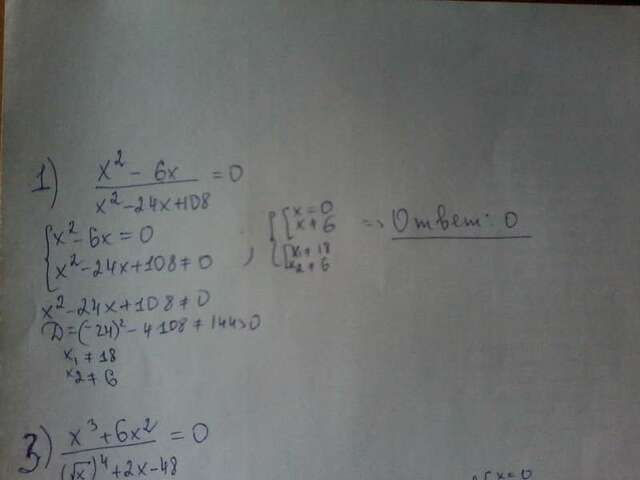 1) x² - 6x / x² - 24x + 108 = 0
{ x² - 6x = 0
x² - 24x + 108 ≠ 0 ,
{ [ x = 0
x ≠ 6
[ x ≠ 18
x₂ ≠ 6
=> Ответ: 0
x² - 24x + 108 ≠ 0
D = (-24)² - 4·108 ≠ 144 > 0
x₁ ≠ 18
x₂ ≠ 6
3) x³ + 6x² / (√x)⁴ + 2x - 48 = 0
x = 0